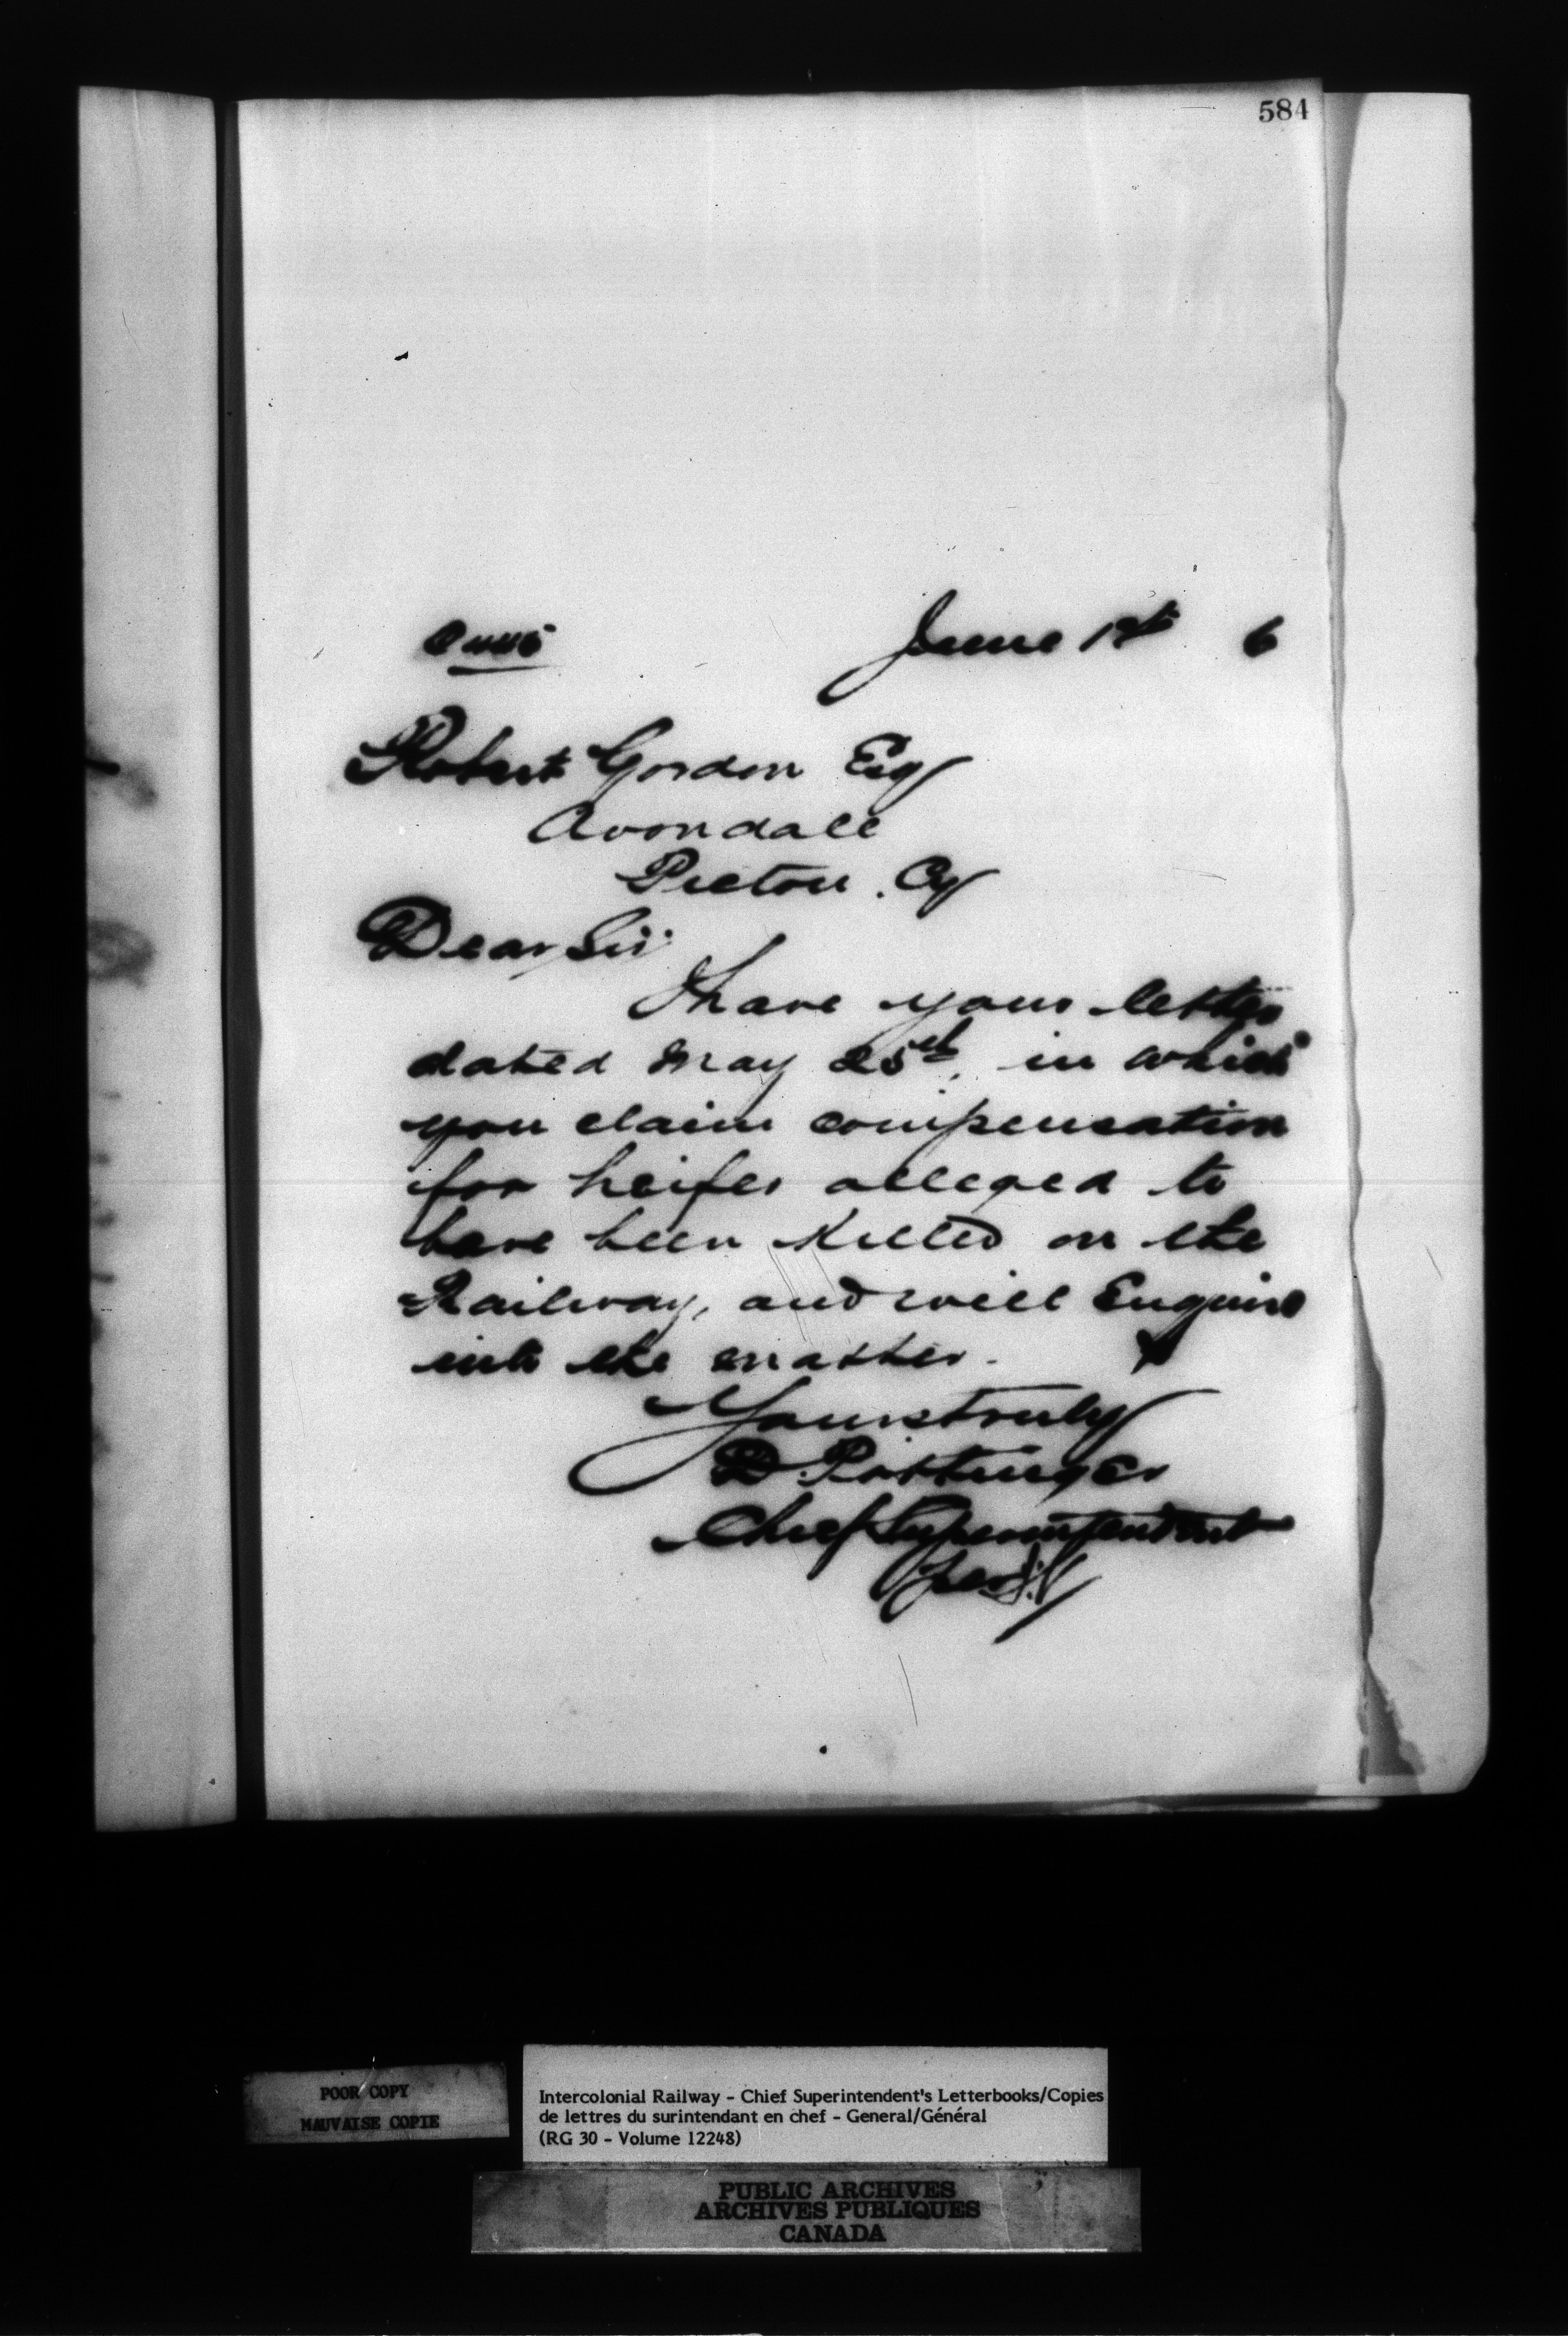 584
June 1st 6
Robert Gordon Esq
Avondale
Pictou Cy
Dear Sir
I have your letter
dated May 25th, in which
you claim compensation
for heifer alleged to
have been killed on the
Railway, and will Enquire
into the matter.
Yours truly
D. Pottinger
Chief Superintendent
per
POOR COPY
MAUVAISE COPIE
Intercolonial Railway - Chief Superintendent's Letterbooks/Copies
de lettres du surintendant en chef - General/Général
(RG 30 - Volume 12248)
PUBLIC ARCHIVES
ARCHIVES PUBLIQUES
CANADA